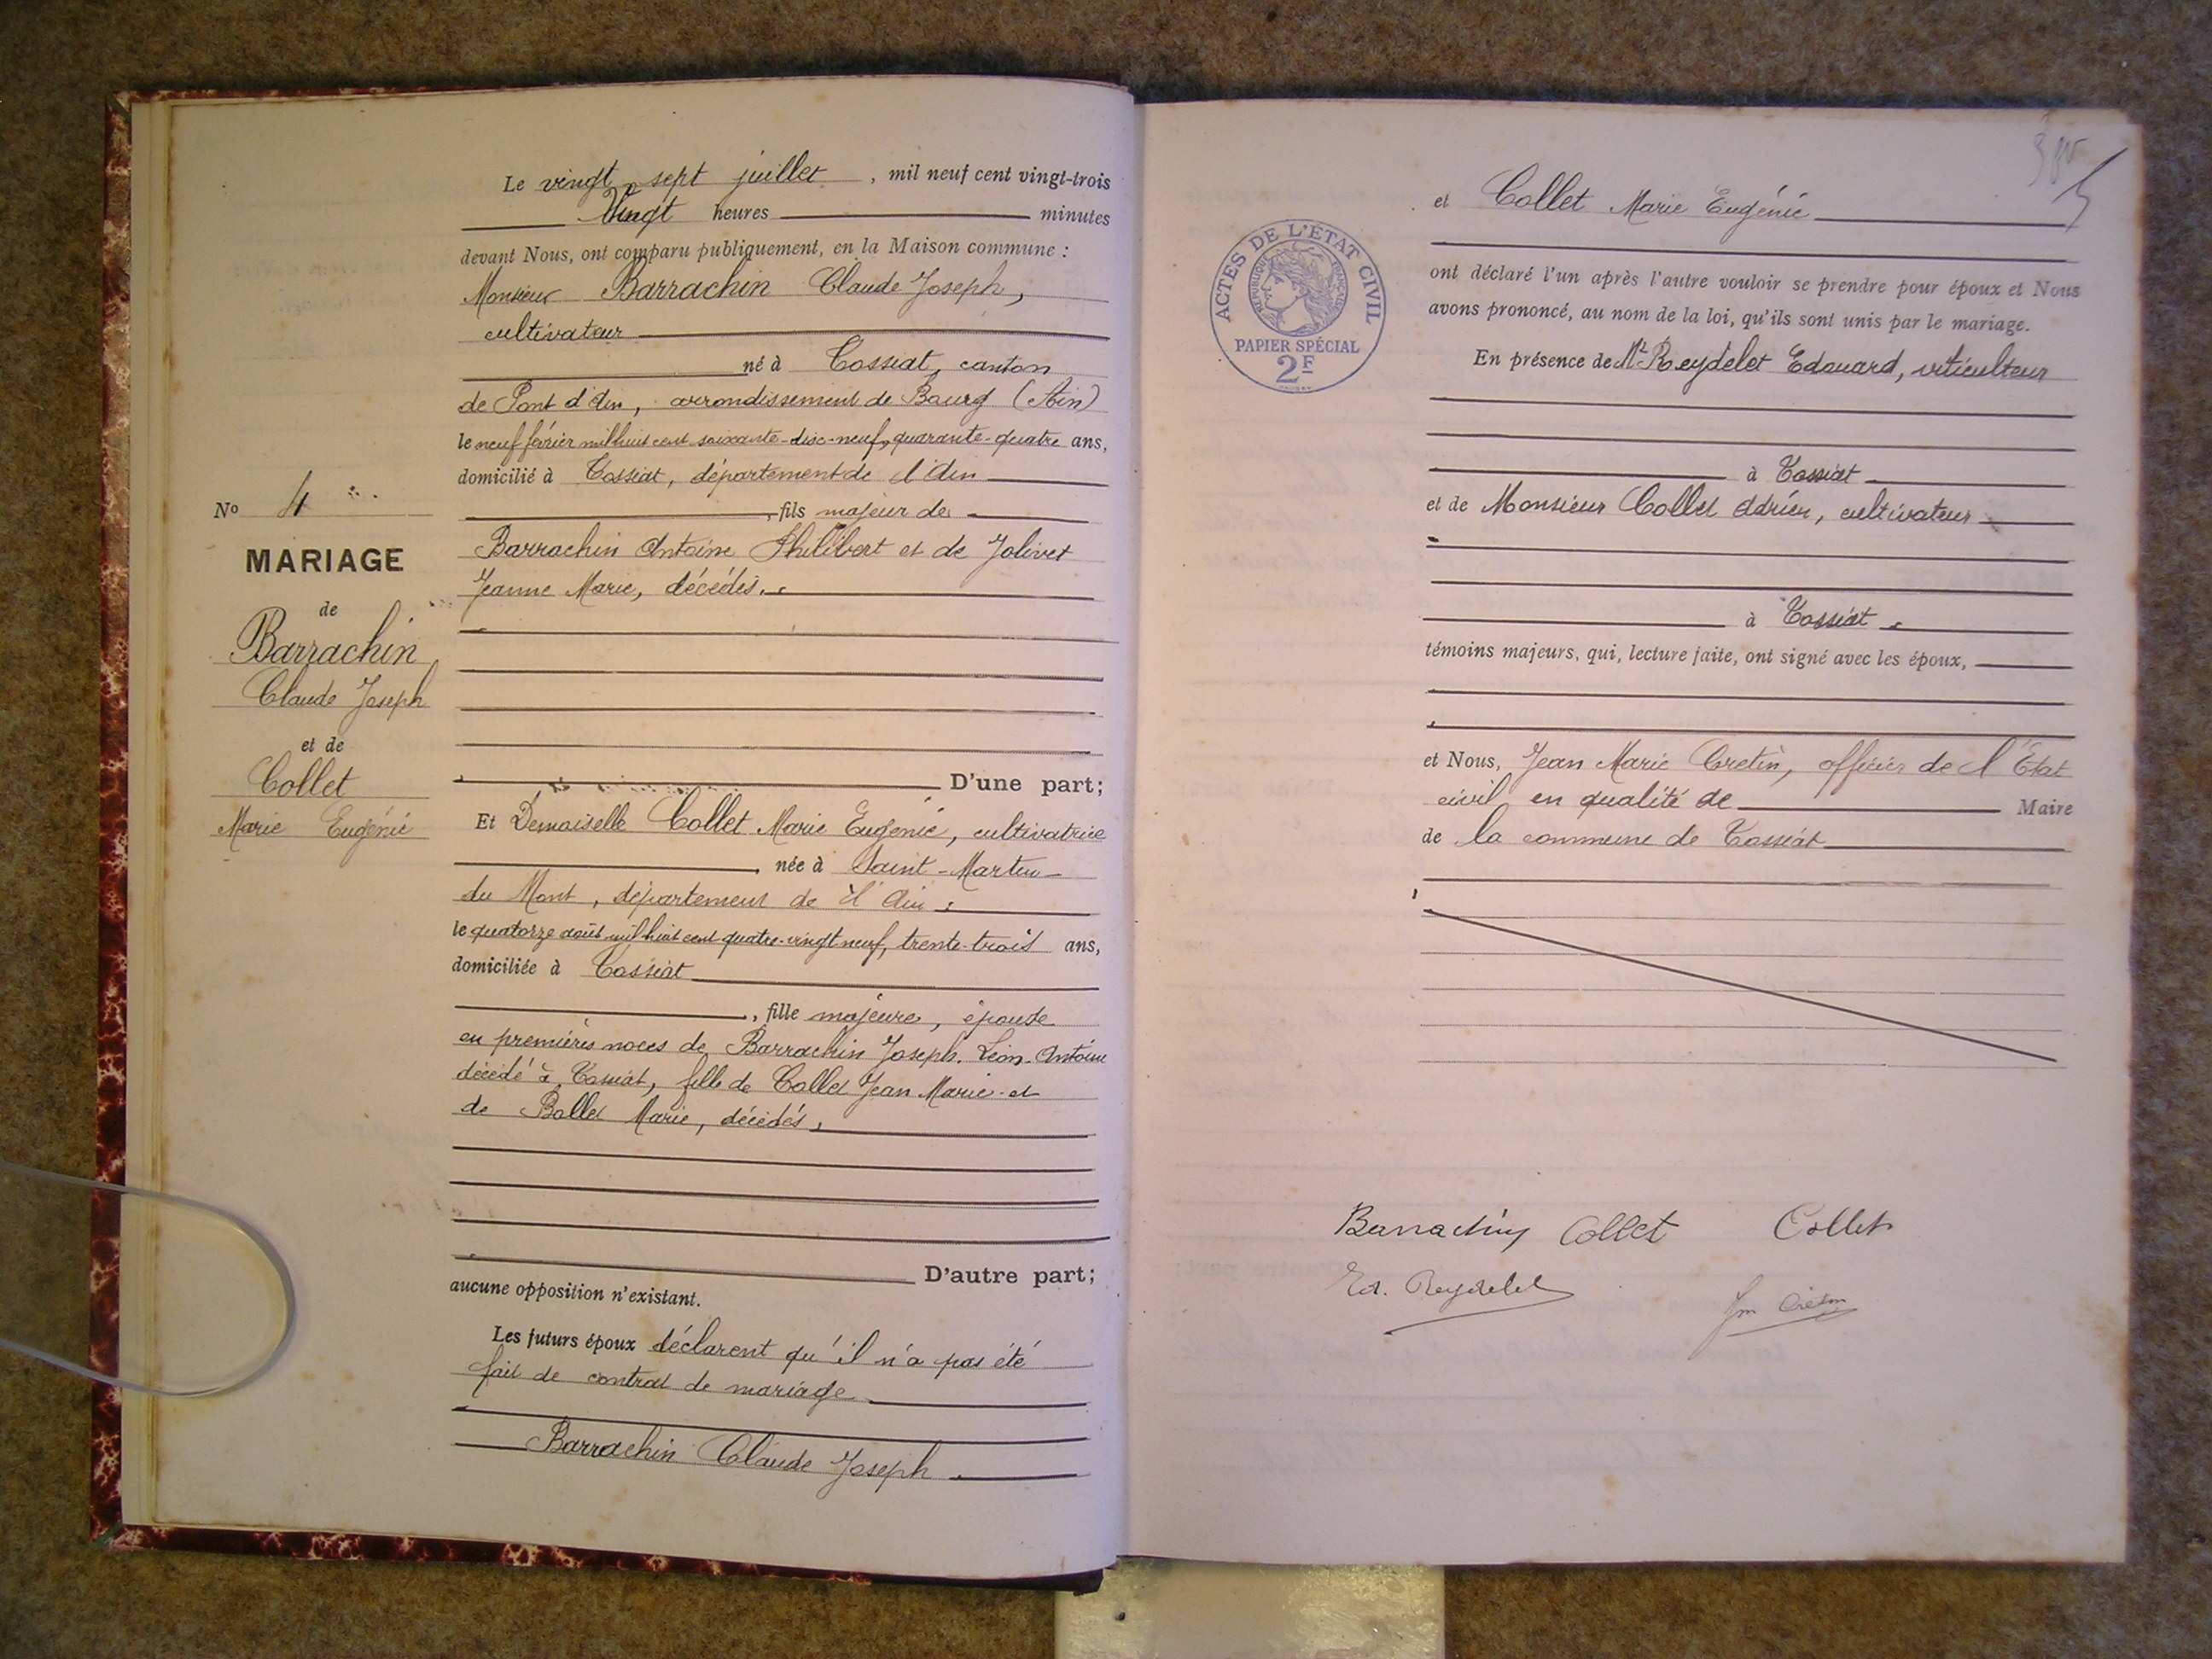 Le vingt-sept juillet, mil neuf cent vingt-trois
Vingt heures minutes
devant Nous, ont comparu publiquement, en la Maison commune :
Monsieur Barrachin Claude Joseph,
cultivateur
né à Tossiat, canton
de Pont d'Ain, arrondissement de Bourg (Ain)
le neuf février mil huit cent soixante-dix-neuf, quarante-quatre ans,
domicilié à Tossiat, département de l'Ain
, fils majeur de
Barrachin Antoine Philibert et de Jolivet
Jeanne Marie, décédés.
No 4
MARIAGE
de
Barrachin
Claude Joseph
et de
Collet
Marie Eugénie
D'une part;
Et Demoiselle Collet Marie Eugénie, cultivatrice
née à Saint-Martin
du Mont, département de l'Ain,
le quatorze août mil huit cent quatre-vingt neuf, trente-trois ans,
domiciliée à Tossiat
, fille majeure, épouse
en premières noces de Barrachin Joseph Léon Antoine
décédé à Tossiat, fille de Collet Jean Marie et
de Bollet Marie, décédés,
D'autre part;
aucune opposition n'existant.
Les futurs époux déclarent qu'il n'a pas été
fait de contrat de mariage
Barrachin Claude Joseph
et Collet Marie Eugénie
ACTES DE L'ÉTAT CIVIL
RÉPUBLIQUE FRANÇAISE
PAPIER SPÉCIAL
2F
ont déclaré l'un après l'autre vouloir se prendre pour époux et Nous
avons prononcé, au nom de la loi, qu'ils sont unis par le mariage.
En présence de Mr Reydelet Edouard, viticulteur
à Tossiat
et de Monsieur Collet Adrien, cultivateur
à Tossiat
témoins majeurs, qui, lecture faite, ont signé avec les époux,
et Nous, Jean Marie Cretin, officier de l'État
civil en qualité de Maire
de la commune de Tossiat
Barrachin Collet Collet
Ed. Reydelet
Jm Cretin